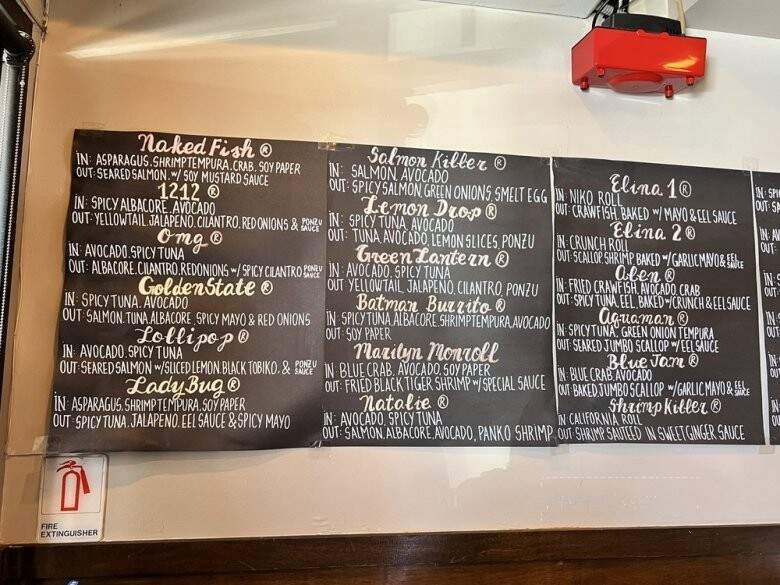 Naked Fish ®
IN: ASPARAGUS. SHRIMP TEMPURA, CRAB, SOY PAPER
OUT: SEARED SALMON. W/ SOY MUSTARD SAUCE
1212 ®
IN: SPICY ALBACORE, AVOCADO
OUT: YELLOWTAIL, JALAPENO, CILANTRO, RED ONIONS & PONZU SAUCE
Omg ®
IN: AVOCADO. SPICY TUNA
OUT: ALBACORE. CILANTRO. RED ONIONS W/ SPICY CILANTRO PONZU SAUCE
Golden State ®
IN: SPICY TUNA. AVOCADO
OUT: SALMON. TUNA. ALBACORE, SPICY MAYO & RED ONIONS
Lollipop ®
IN: AVOCADO. SPICY TUNA
OUT: SEARED SALMON W/ SLICED LEMON, BLACK TOBIKO, & PONZU SAUCE
Lady Bug ®
IN: ASPARAGUS. SHRIMP TEMPURA. SOY PAPER
OUT: SPICY TUNA, JALAPENO, EEL SAUCE & SPICY MAYO
Salmon Killer ®
IN: SALMON, AVOCADO
OUT: SPICY SALMON, GREEN ONIONS, SMELT EGG
Lemon Drop ®
IN: SPICY TUNA, AVOCADO
OUT: TUNA, AVOCADO, LEMON SLICES, PONZU
Green Lantern ®
IN: AVOCADO, SPICY TUNA
OUT: YELLOWTAIL, JALAPENO, CILANTRO, PONZU
Batman Burrito ®
IN: SPICY TUNA, ALBACORE, SHRIMP TEMPURA, AVOCADO
OUT: SOY PAPER
Marilyn Monroll
IN: BLUE CRAB, AVOCADO, SOY PAPER
OUT: FRIED BLACK TIGER SHRIMP W/ SPECIAL SAUCE
Natalie ®
IN: AVOCADO, SPICY TUNA
OUT: SALMON, ALBACORE, AVOCADO, PANKO SHRIMP
Elina 1 ®
IN: NIKO ROLL
OUT: CRAWFISH, BAKED W/ MAYO & EEL SAUCE
Elina 2 ®
IN: CRUNCH ROLL
OUT: SCALLOP, SHRIMP BAKED W/ GARLIC MAYO & EEL SAUCE
Alen ®
IN: FRIED CRAWFISH, AVOCADO, CRAB
OUT: SPICY TUNA, EEL, BAKED W/ CRUNCH & EEL SAUCE
Aquaman ®
IN: SPICY TUNA, GREEN ONION TEMPURA
OUT: SEARED JUMBO SCALLOP W/ EEL SAUCE
Blue Jam ®
IN: BLUE CRAB, AVOCADO
OUT: BAKED JUMBO SCALLOP W/ GARLIC MAYO & EEL SAUCE
Shrimp Killer ®
IN: CALIFORNIA ROLL
OUT: SHRIMP SAUTEED IN SWEET GINGER SAUCE
FIRE
EXTINGUISHER